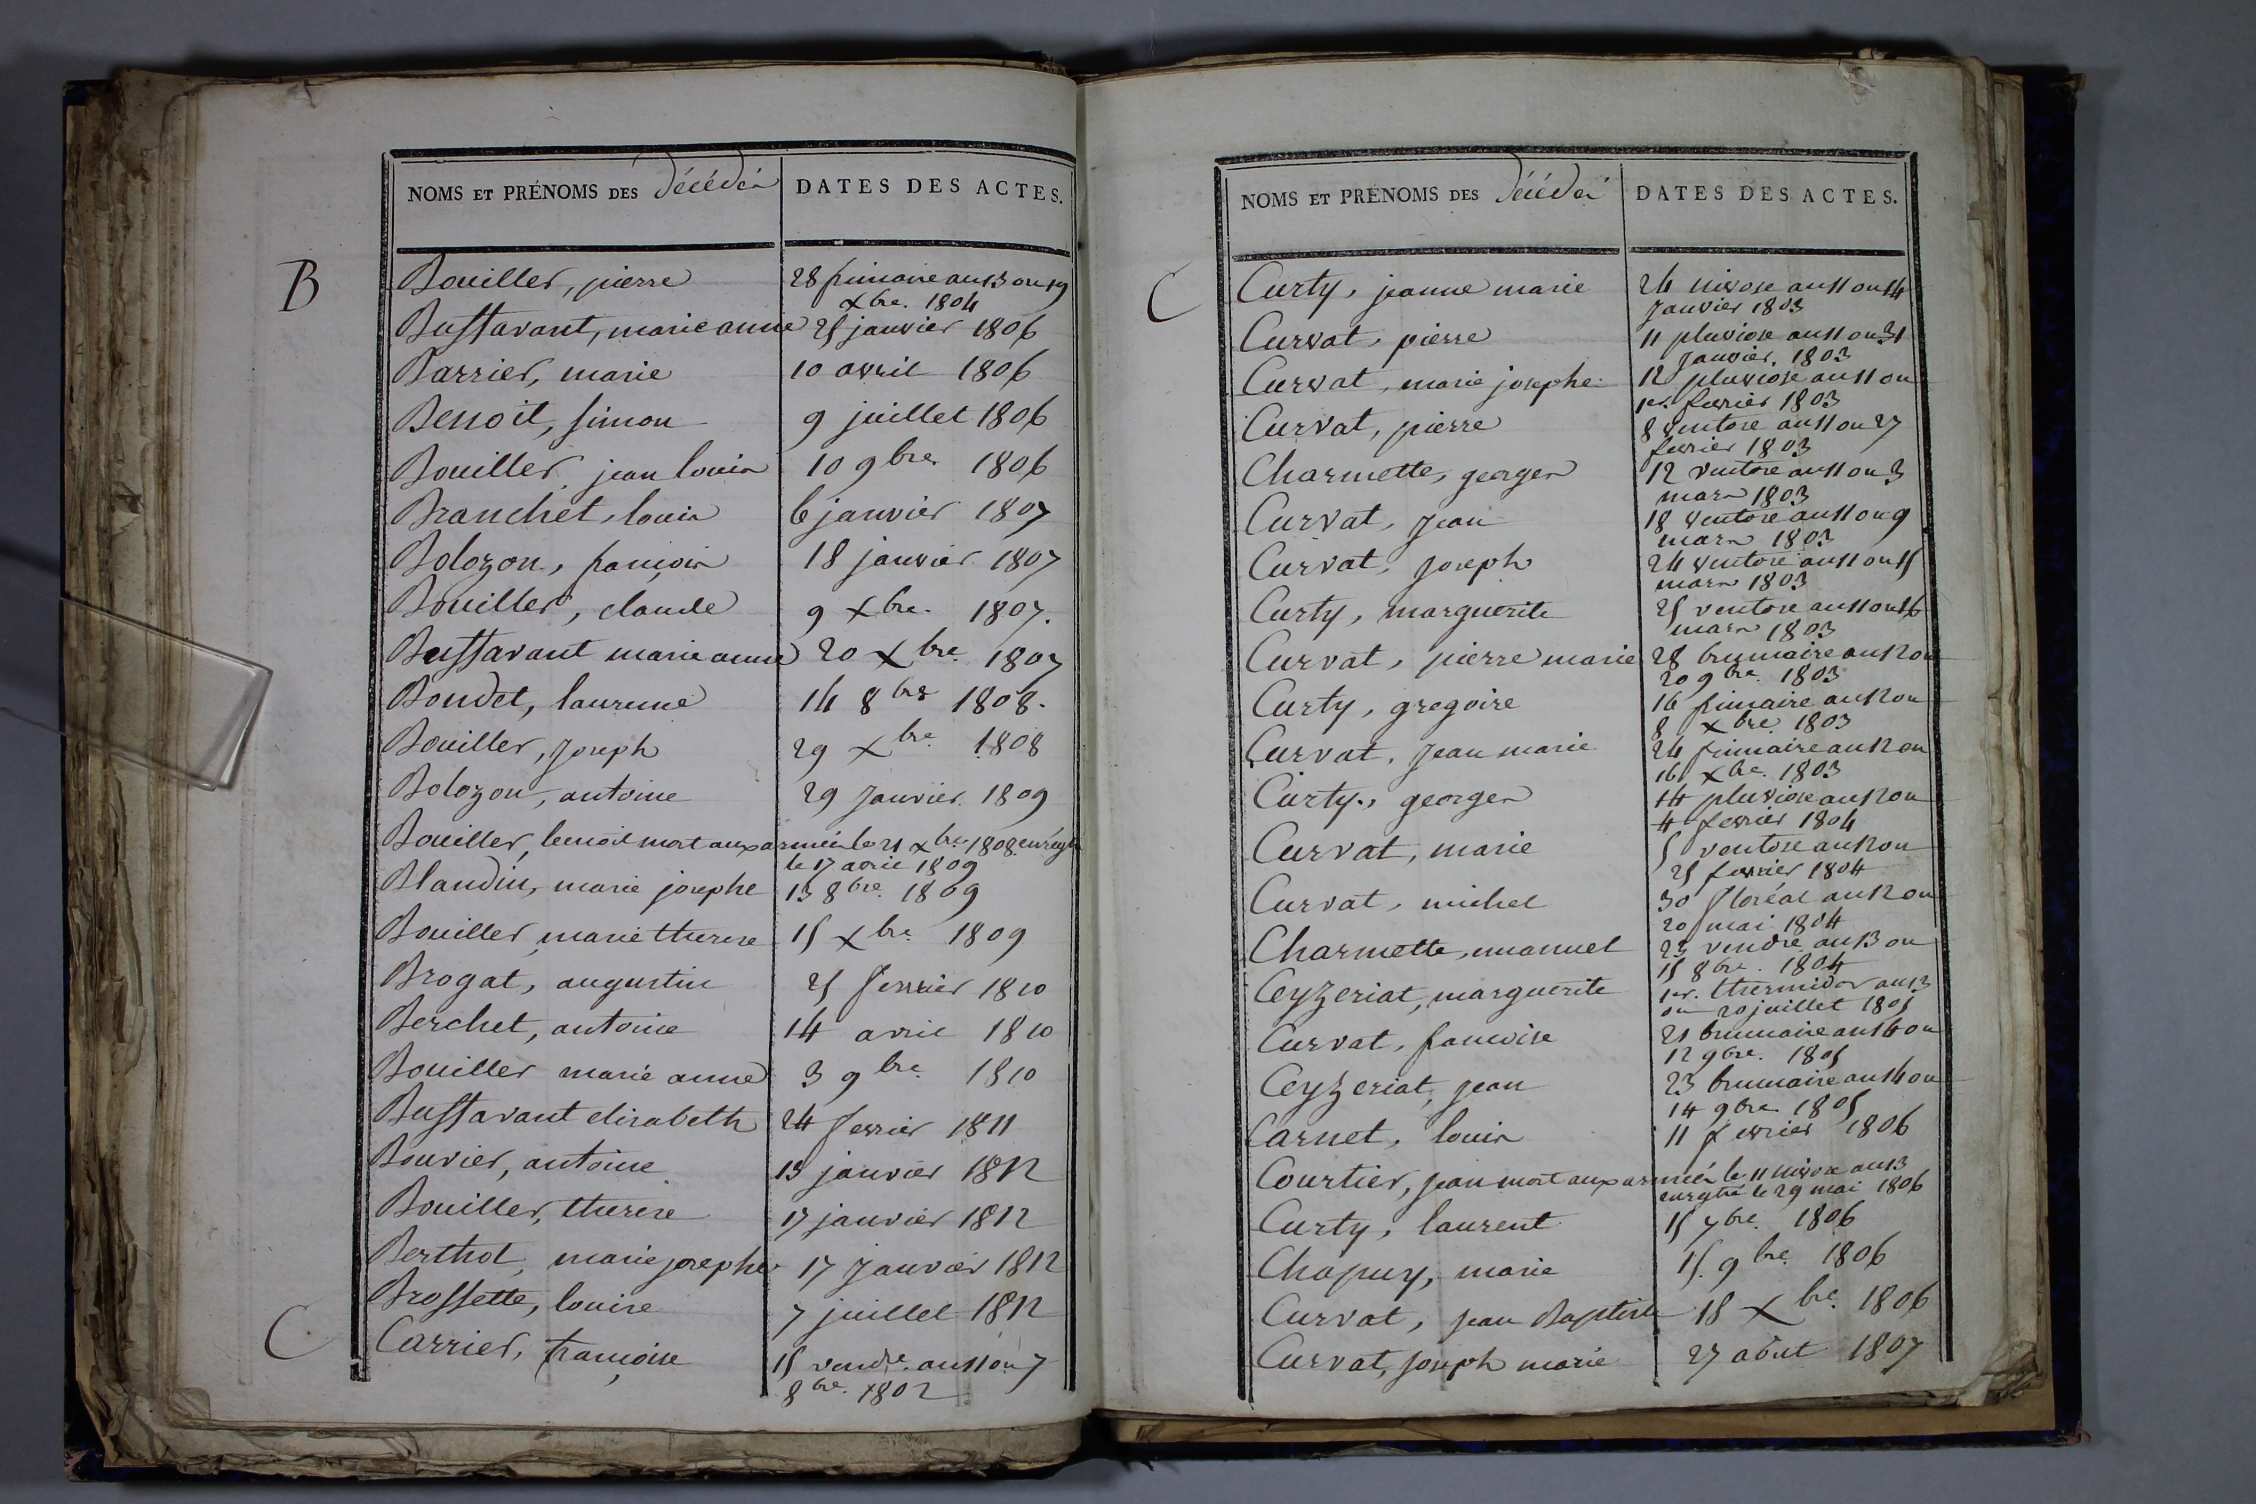 NOMS ET PRÉNOMS DES décédés DATES DES ACTES.
B
Bouiller, pierre 28 frimaire an 13 ou 19
xbre. 1804
Bussavant, marie anne 25 janvier 1806
Barrier, marie 10 avril 1806
Benoit, simon 9 juillet 1806
Bouiller, jean louis 10 9bre. 1806
Branchet, louis 6 janvier 1807
Bolozon, françois 18 janvier 1807
Bouiller, claude 9 xbre. 1807.
Bussavant marie anne 20 xbre. 1807
Boudet, laurence 14 8bre 1808.
Bouiller, Joseph 29 xbre. 1808
Bolozon, antoine 29 Janvier 1809
Bouiller, benoit mort aux armées le 21 xbre. 1808. enregtré
le 17 avril 1809
Blandin, marie josephe 13 8bre. 1809
Bouiller, marie therese 15 xbre. 1809
Brogat, augustin 25 fevrier 1810
Berchet, antoine 14 avril 1810
Bouiller marie anne 3 9bre. 1810
Bussavant elisabeth 24 fevrier 1811
Bouvier, antoine 13 janvier 1812
Bouiller, therese 17 janvier 1812
Berthot, marie josephe 17 Janvier 1812
Brossette, louise 7 juillet 1812
C
Carrier, françoise 15 vendre. an 11 ou 7
8bre. 1802
NOMS ET PRÉNOMS DES décédés DATES DES ACTES.
C
Curty, jeanne marie 24 nivose an 11 ou 14
Janvier 1803
Curvat, pierre 11 pluviose an 11 ou 31
Janvier. 1803
Curvat, marie josephe 12 pluviose an 11 ou
1er. fevrier 1803
Curvat, pierre 8 ventose an 11 ou 27
fevrier 1803
Charmette, georges 12 ventose an 11 ou 3
mars 1803
Curvat, Jean 18 ventose an 11 ou 9
mars 1803
Curvat, Joseph 24 ventose an 11 ou 15
mars 1803
Curty, marguerite 25 ventose an 11 ou 16
mars 1803
Curvat, pierre marie 28 brumaire an 12 ou
20 9bre. 1803
Curty, gregoire 16 frimaire an 12 ou
8 xbre. 1803
Curvat, Jean marie 24 frimaire an 12 ou
16 xbre. 1803
Curty, georges 14 pluviose an 12 ou
4 fevrier 1804
Curvat, marie 5 ventose an 12 ou
25 fevrier 1804
Curvat, michel 30 floréal an 12 ou
20 mai 1804
Charmette, emanuel 23 vendre. an 13 ou
15 8bre. 1804
Ceyzeriat, marguerite 1er. thermidor an 13
ou 20 juillet 1805
Curvat, francoise 21 brumaire an 14 ou
12 9bre. 1805
Ceyzeriat, jean 23 brumaire an 14 ou
14 9bre. 1805
Carnet, louis 11 fevrier 1806
Courtier, jean mort aux armées le 11 nivose an 13
enregtré le 29 mai 1806
Curty, laurent 15 7bre. 1806
Chapuy, marie 15. 9bre. 1806
Curvat, jean Baptiste 18 xbre. 1806
Curvat, joseph marie 27 août 1807